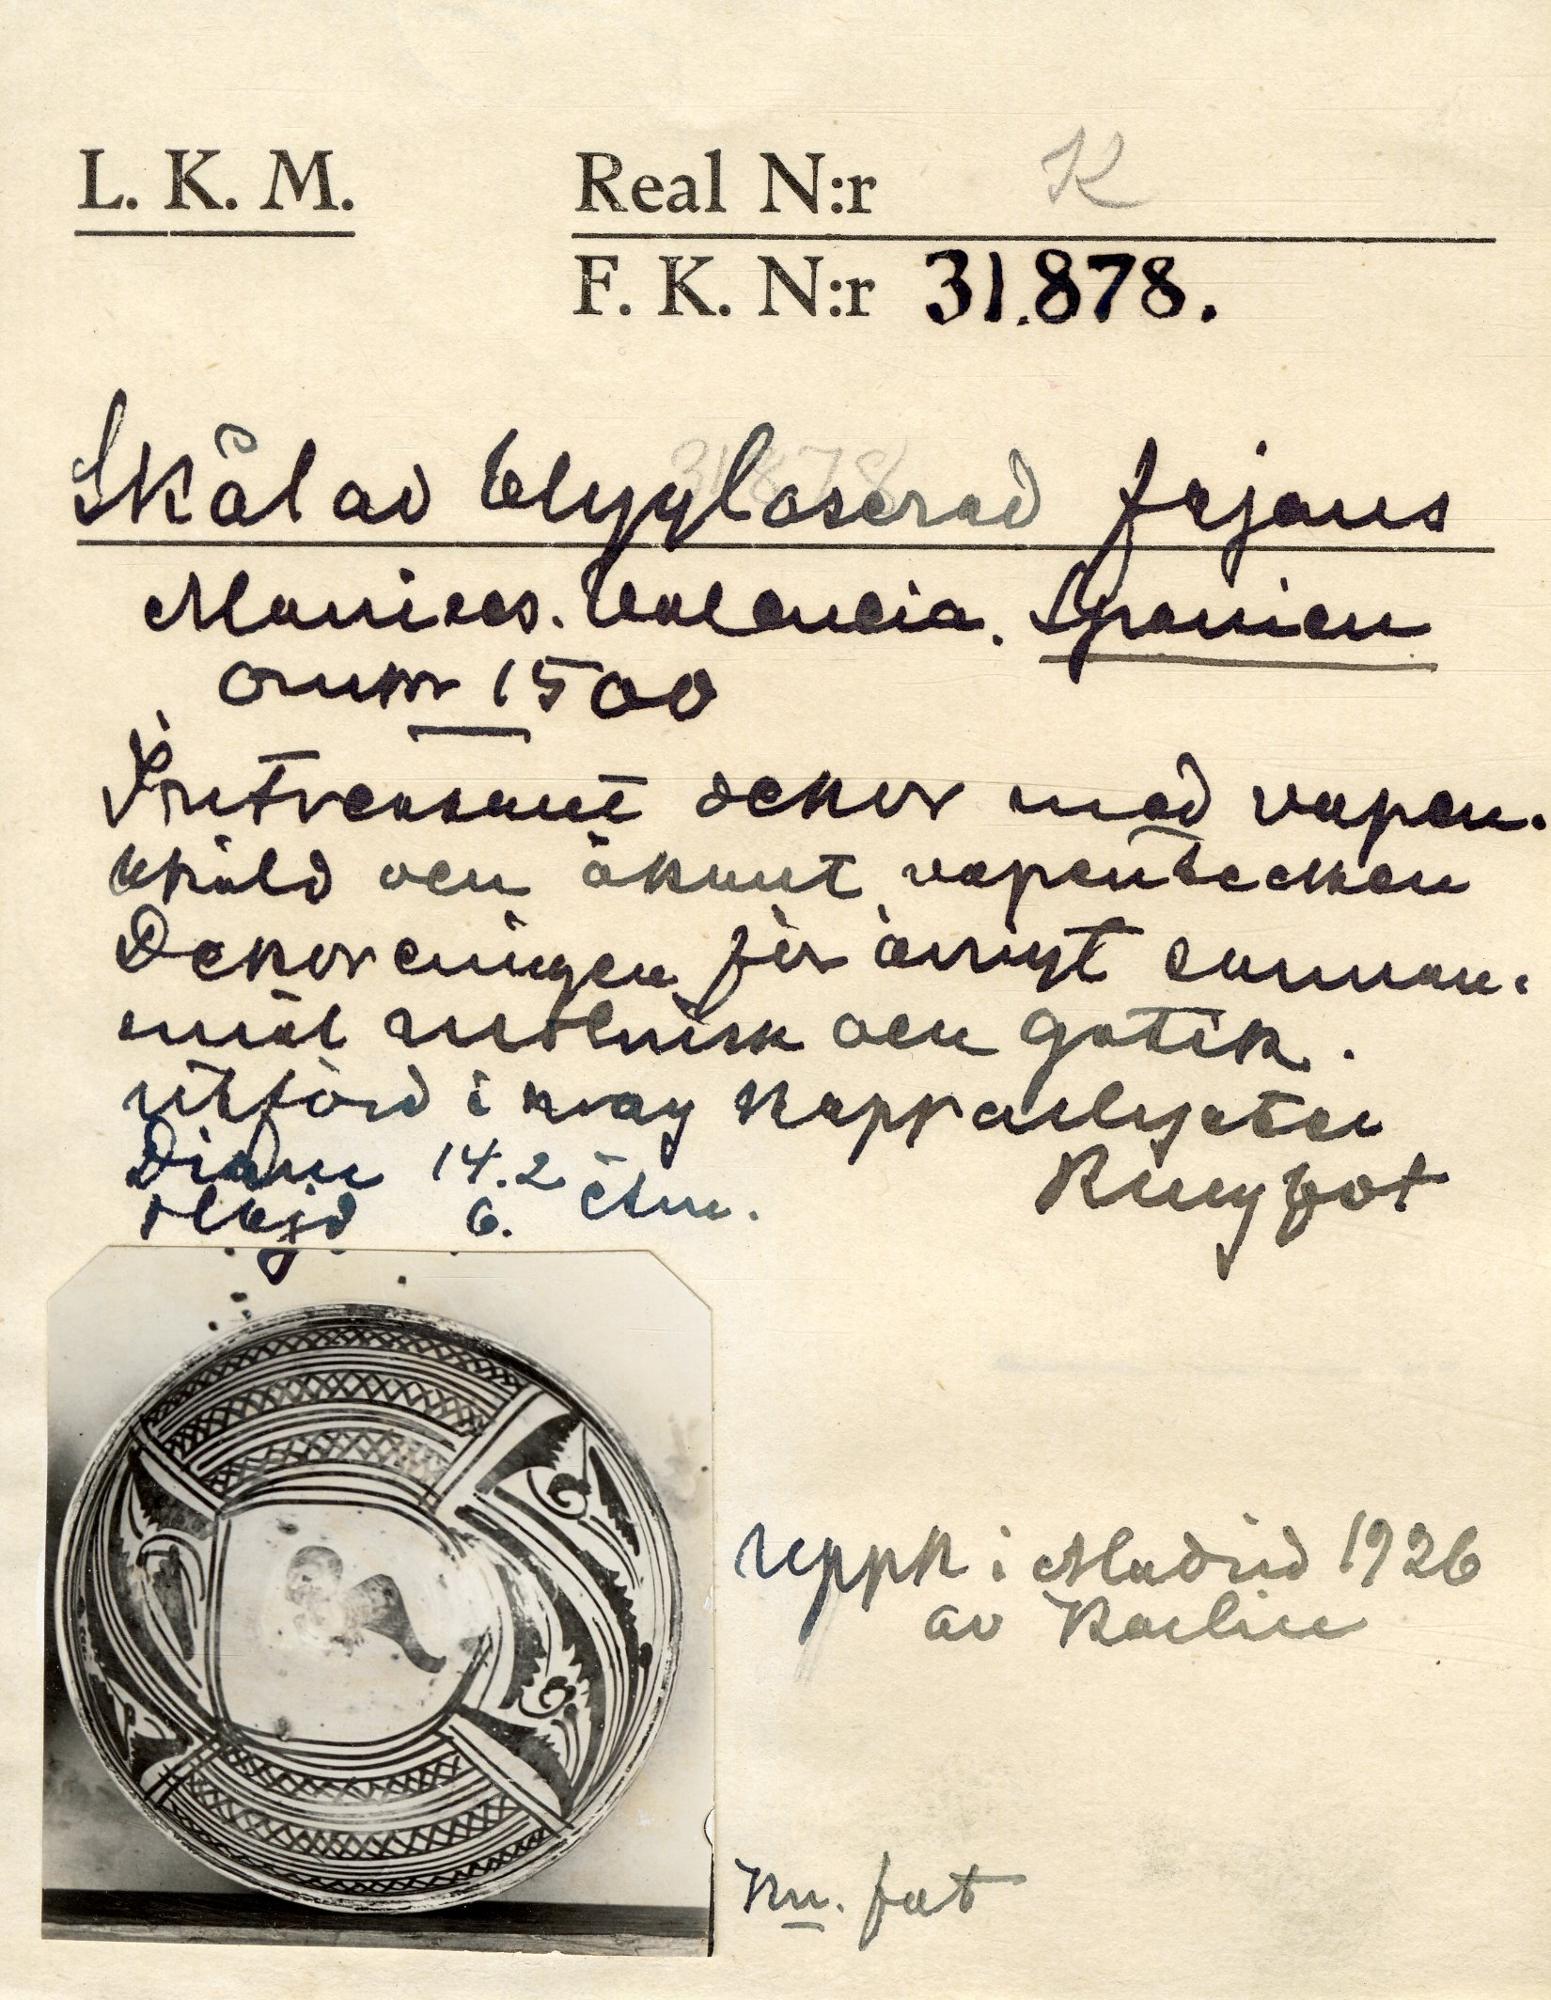 L. K. M.
Real N:r K
F. K. N:r 31.878.
31878
Skål av blyglaserad fajans
Manises. Valencia. Spanien
omkr 1500
Intressant dekor med vapen-
sköld och okänt vapentecken
Dekoreringen för övrigt samman-
smält och gotik.
utförd i svag kopparlyster
Diam 14.2 ctm.
Höjd 6.
uppk i Madrid 1926
av Karlin
Kn. fat